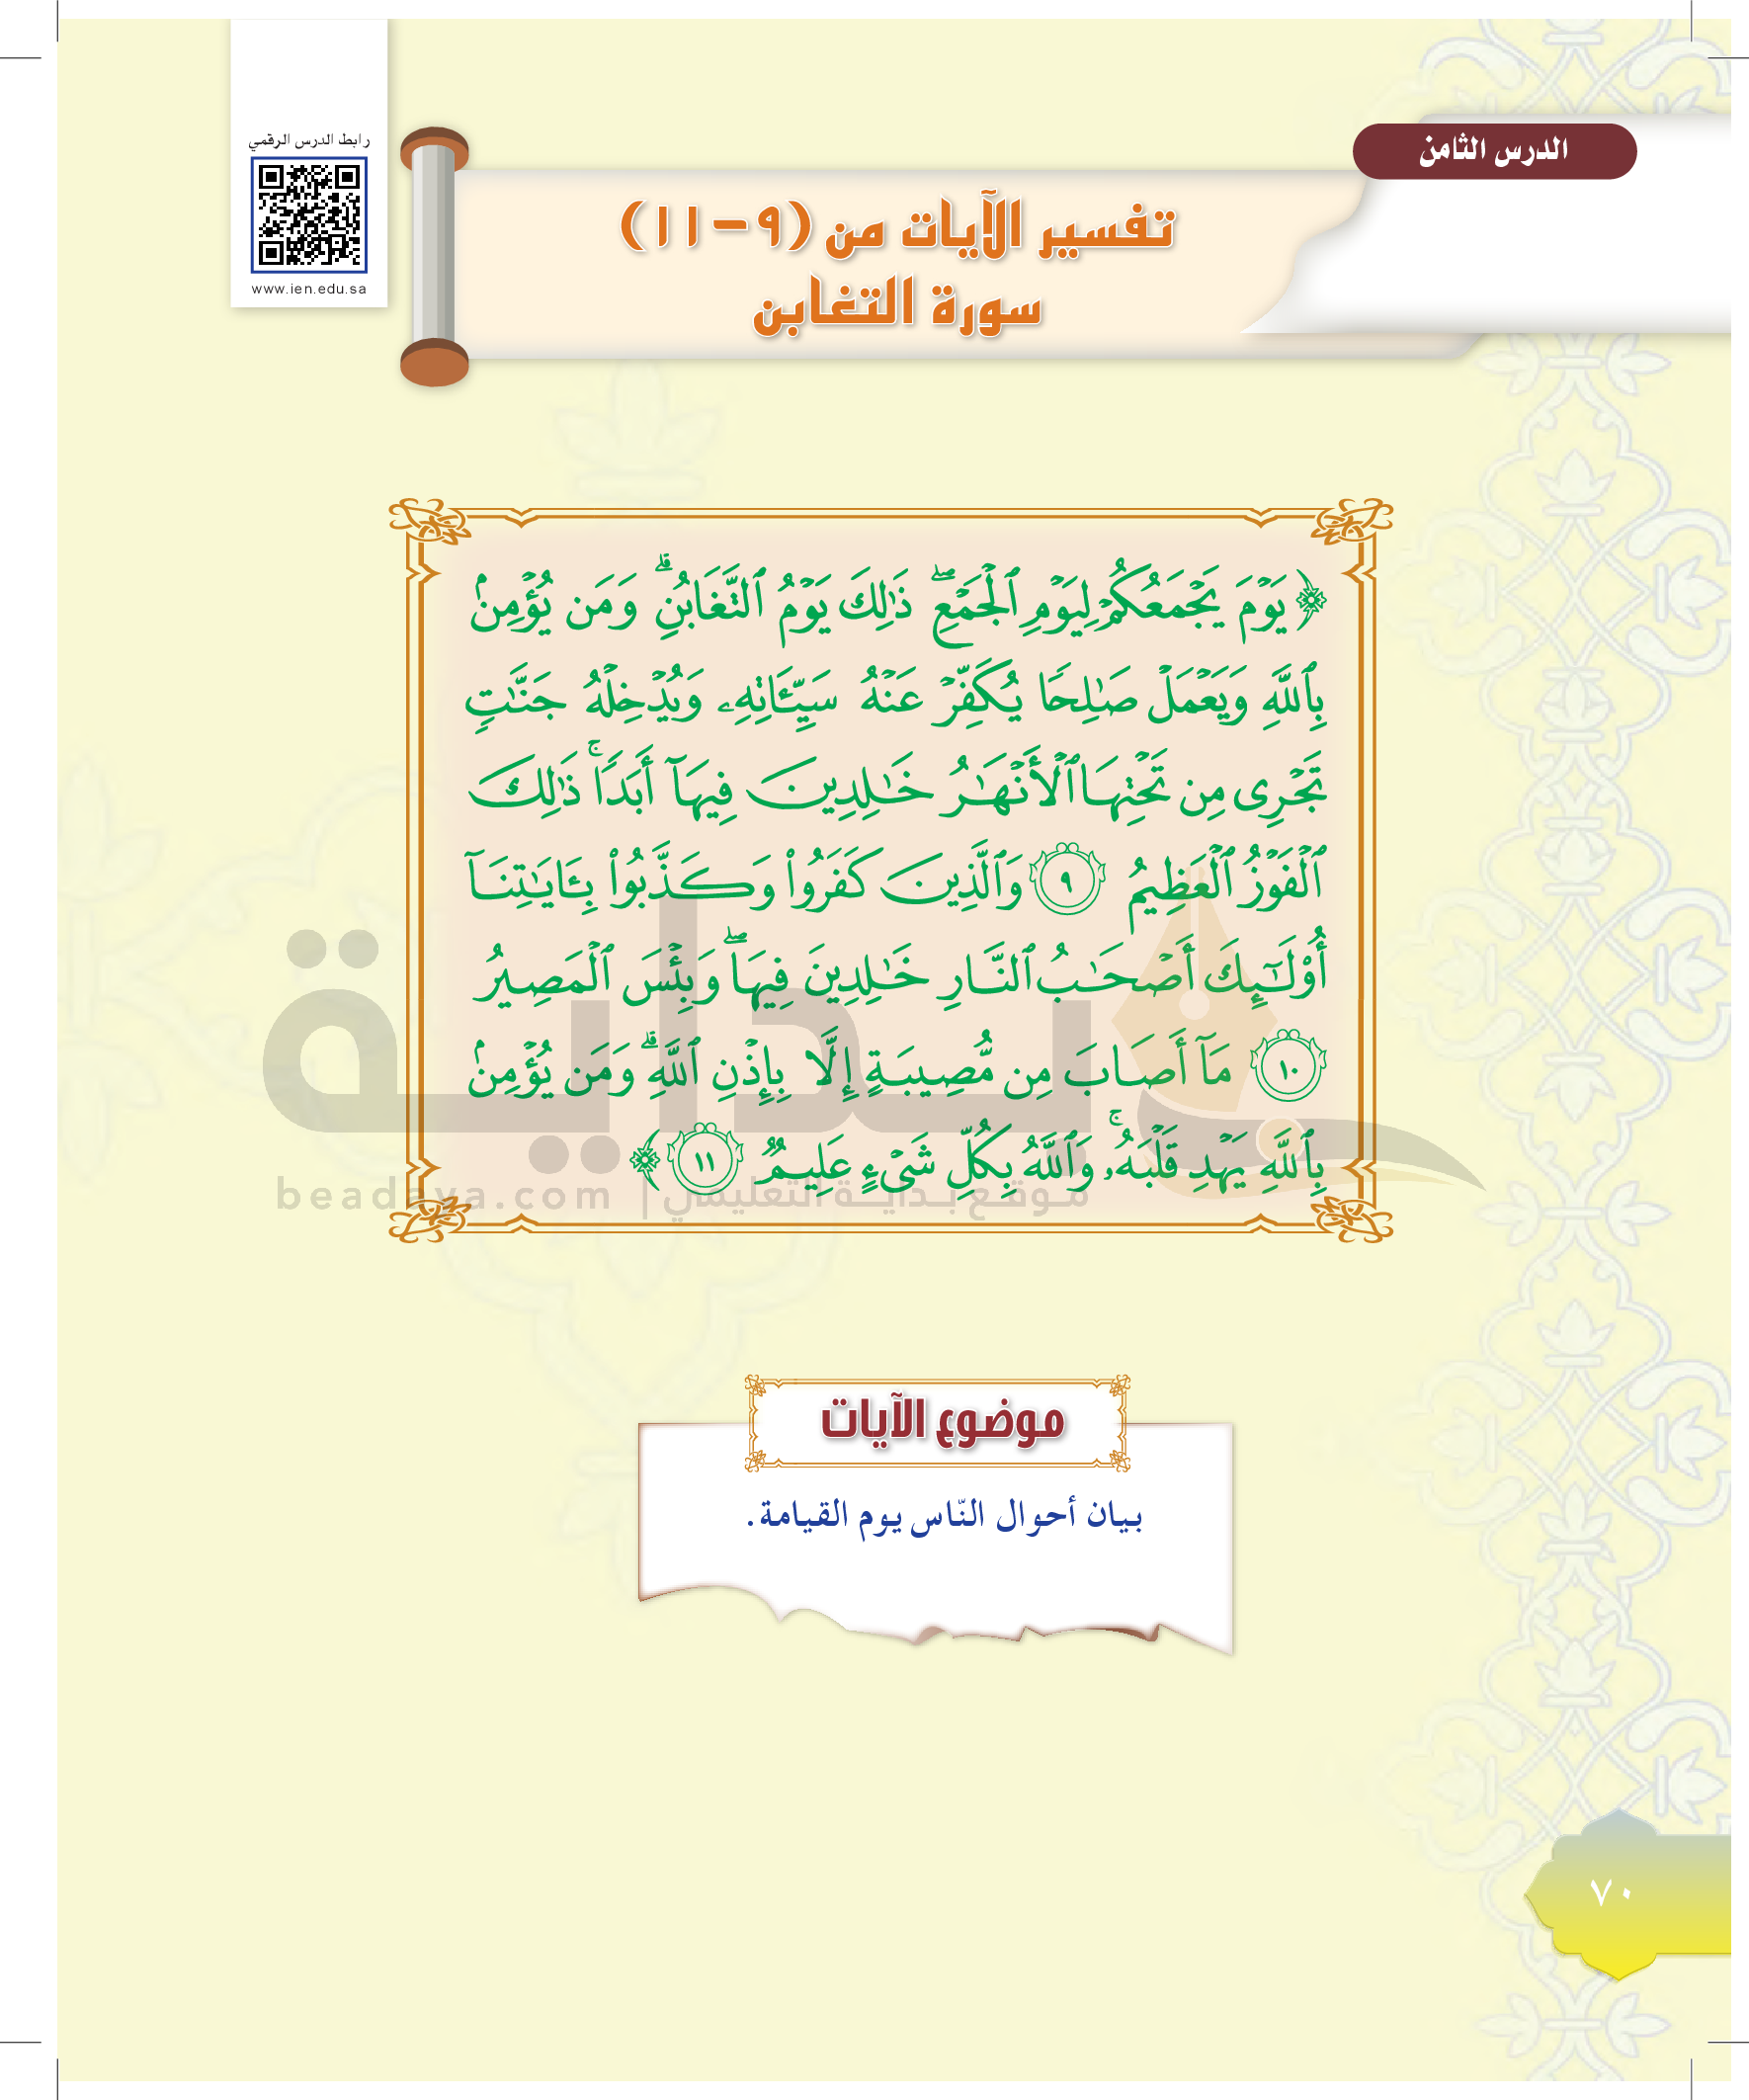 الدرس الثامن
رابط الدرس الرقمي
www.ien.edu.sa
تفسير الآيات من (٩-١١)
سورة التغابن
﴿يَوۡمَ يَجۡمَعُكُمۡ لِيَوۡمِ ٱلۡجَمۡعِۖ ذَٰلِكَ يَوۡمُ ٱلتَّغَابُنِۗ وَمَن يُؤۡمِنۢ
بِٱللَّهِ وَيَعۡمَلۡ صَٰلِحٗا يُكَفِّرۡ عَنۡهُ سَيِّـَٔاتِهِۦ وَيُدۡخِلۡهُ جَنَّٰتٖ
تَجۡرِي مِن تَحۡتِهَا ٱلۡأَنۡهَٰرُ خَٰلِدِينَ فِيهَآ أَبَدٗاۚ ذَٰلِكَ
ٱلۡفَوۡزُ ٱلۡعَظِيمُ ٩ وَٱلَّذِينَ كَفَرُواْ وَكَذَّبُواْ بِـَٔايَٰتِنَآ
أُوْلَٰٓئِكَ أَصۡحَٰبُ ٱلنَّارِ خَٰلِدِينَ فِيهَاۖ وَبِئۡسَ ٱلۡمَصِيرُ
١٠ مَآ أَصَابَ مِن مُّصِيبَةٍ إِلَّا بِإِذۡنِ ٱللَّهِۗ وَمَن يُؤۡمِنۢ
بِٱللَّهِ يَهۡدِ قَلۡبَهُۥۚ وَٱللَّهُ بِكُلِّ شَيۡءٍ عَلِيمٞ ١١﴾
بداية
موقع بداية التعليمي | beadaya.com
موضوع الآيات
بيان أحوال النّاس يوم القيامة.
٧٠